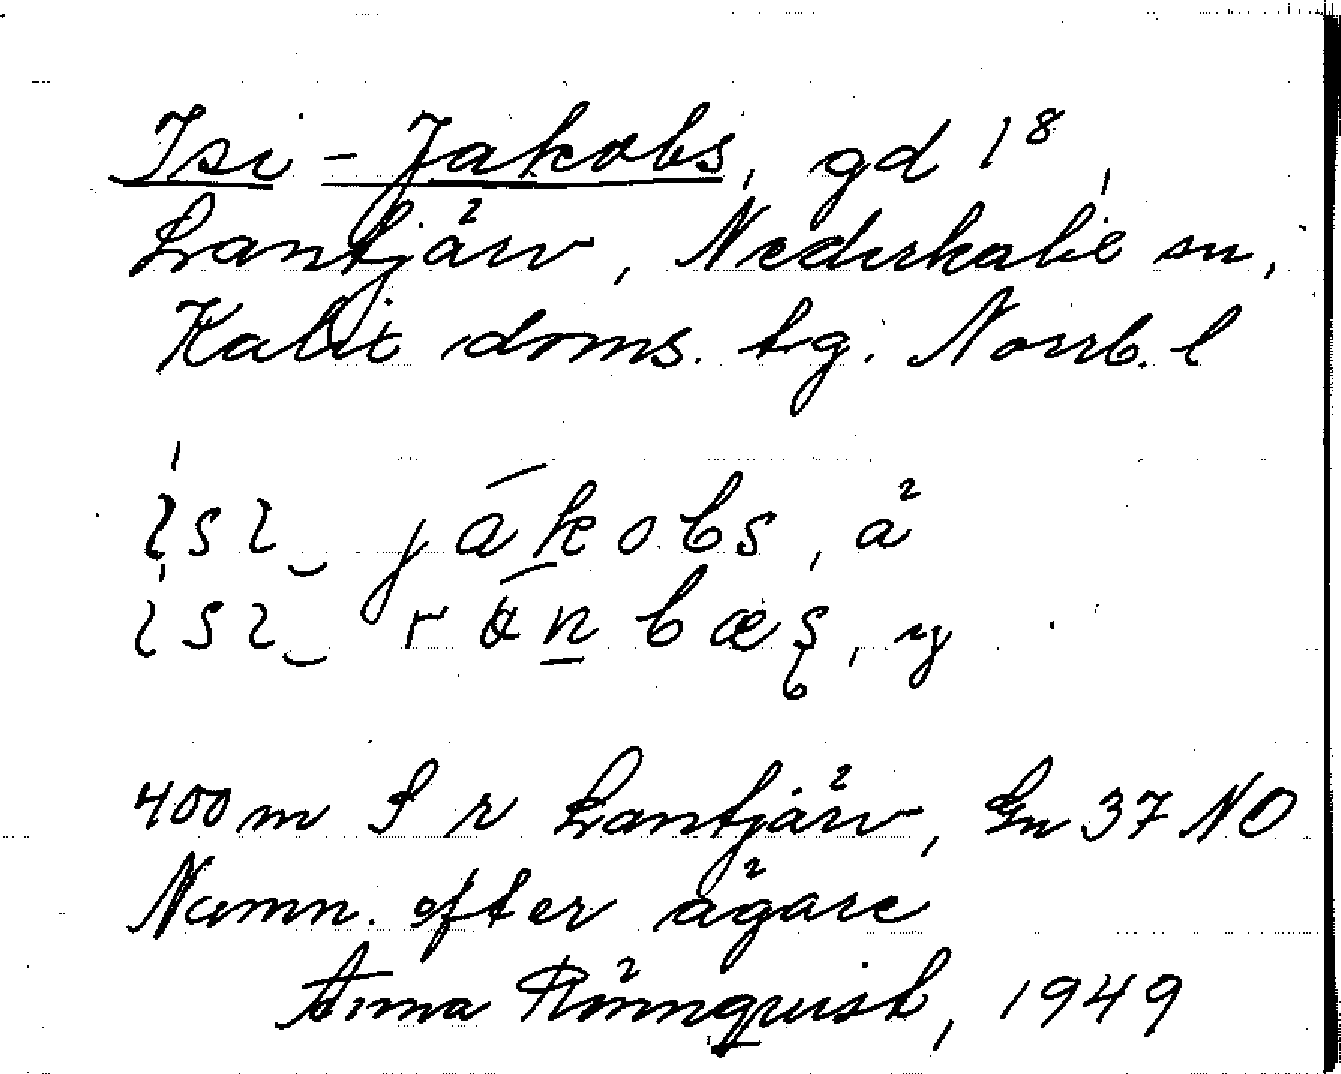 Isi-Jakobs, gd 1⁸,
Lantjärv, Nederkalix sn,
Kalix doms. tg. Norrb. l
ɩsɩ‿jákobs, ä
ɩsɩ‿rönbæʂ, y
400 m S r Lantjärv, Gn 37 NO
Namn. efter ägare
Anna Rönnquist, 1949